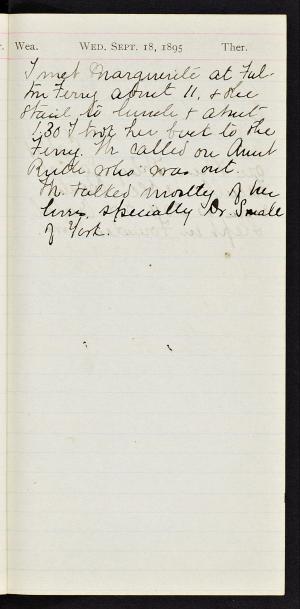 Wea. WED. SEPT. 18, 1895 Ther.
I met Marguerite at Ful-
ton Ferry about 11, & she
staid to lunch & about
1.30 I took her back to the
Ferry. We called on Aunt
Ruth who was out.
We talked mostly of her
love, specially Dr. Small
of York.